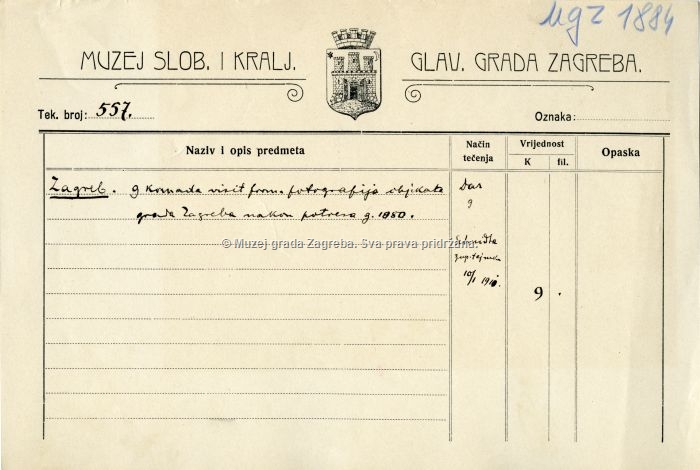 MGZ 1884
MUZEJ SLOB. I KRALJ. GLAV. GRADA ZAGREBA.
Tek. broj: 557. Oznaka:
Naziv i opis predmeta Način tečenja Vrijednost K fil. Opaska
Zagreb. 9 komada visit form. fotografija objekata Dar
grada Zagreba nakon potresa g. 1880. g
© Muzej grada Zagreba. Sva prava pridržana.
10/I 1910.
9 .